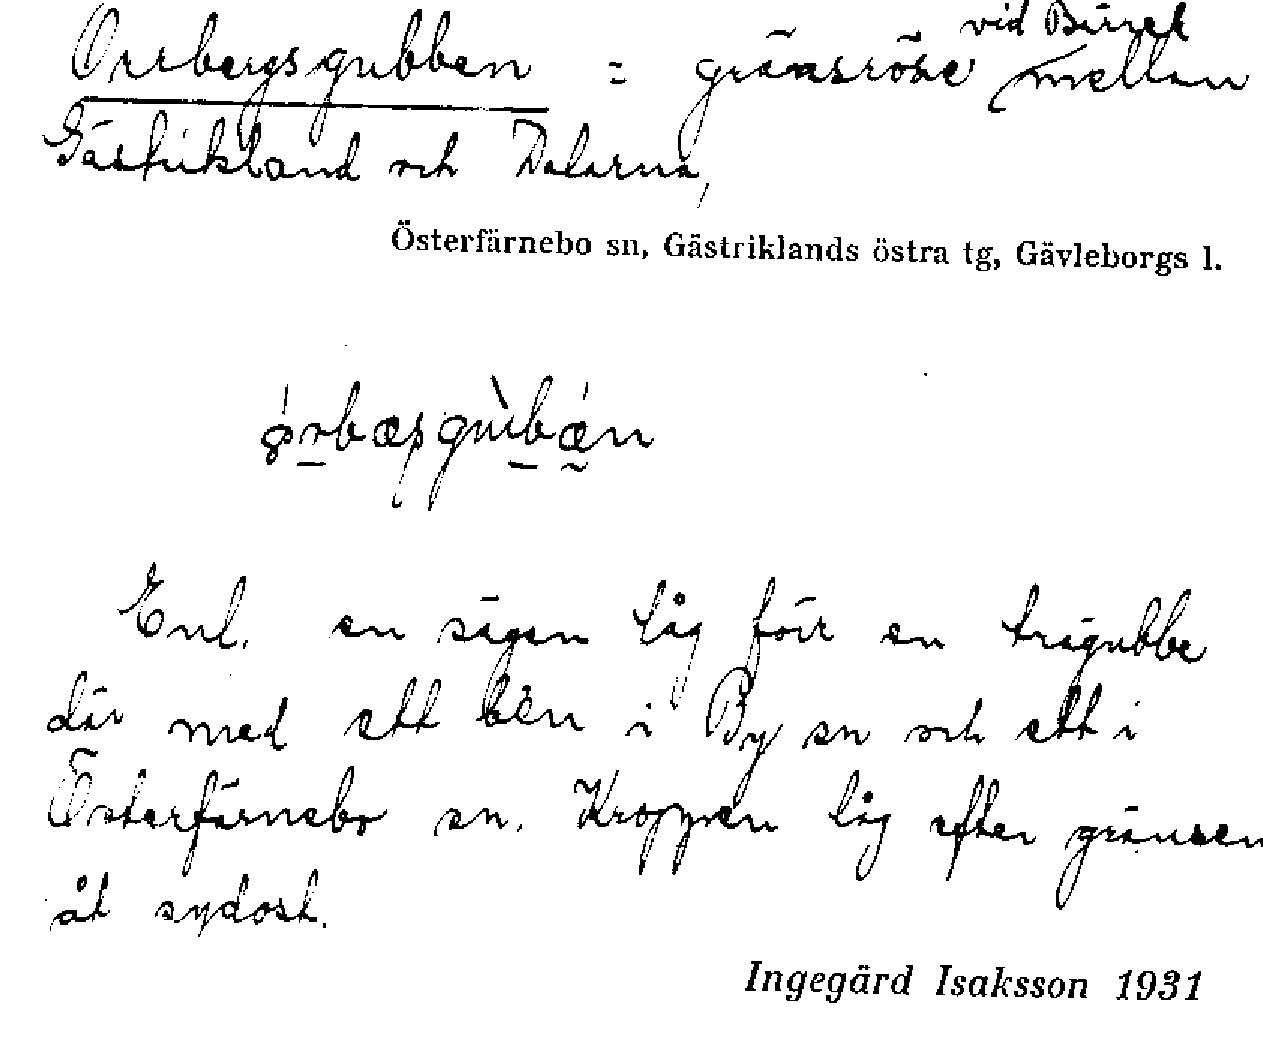 Orrbergsgubben = gränsröse vid Bursk mellan
Gästrikland och Dalarna,
Österfärnebo sn, Gästriklands östra tg, Gävleborgs l.
Enl. en sägen låg förr en trägubbe
där med ett ben i By sn och ett i
Österfärnebo sn. Kroppen låg efter gränsen
åt sydost.
Ingegärd Isaksson 1931